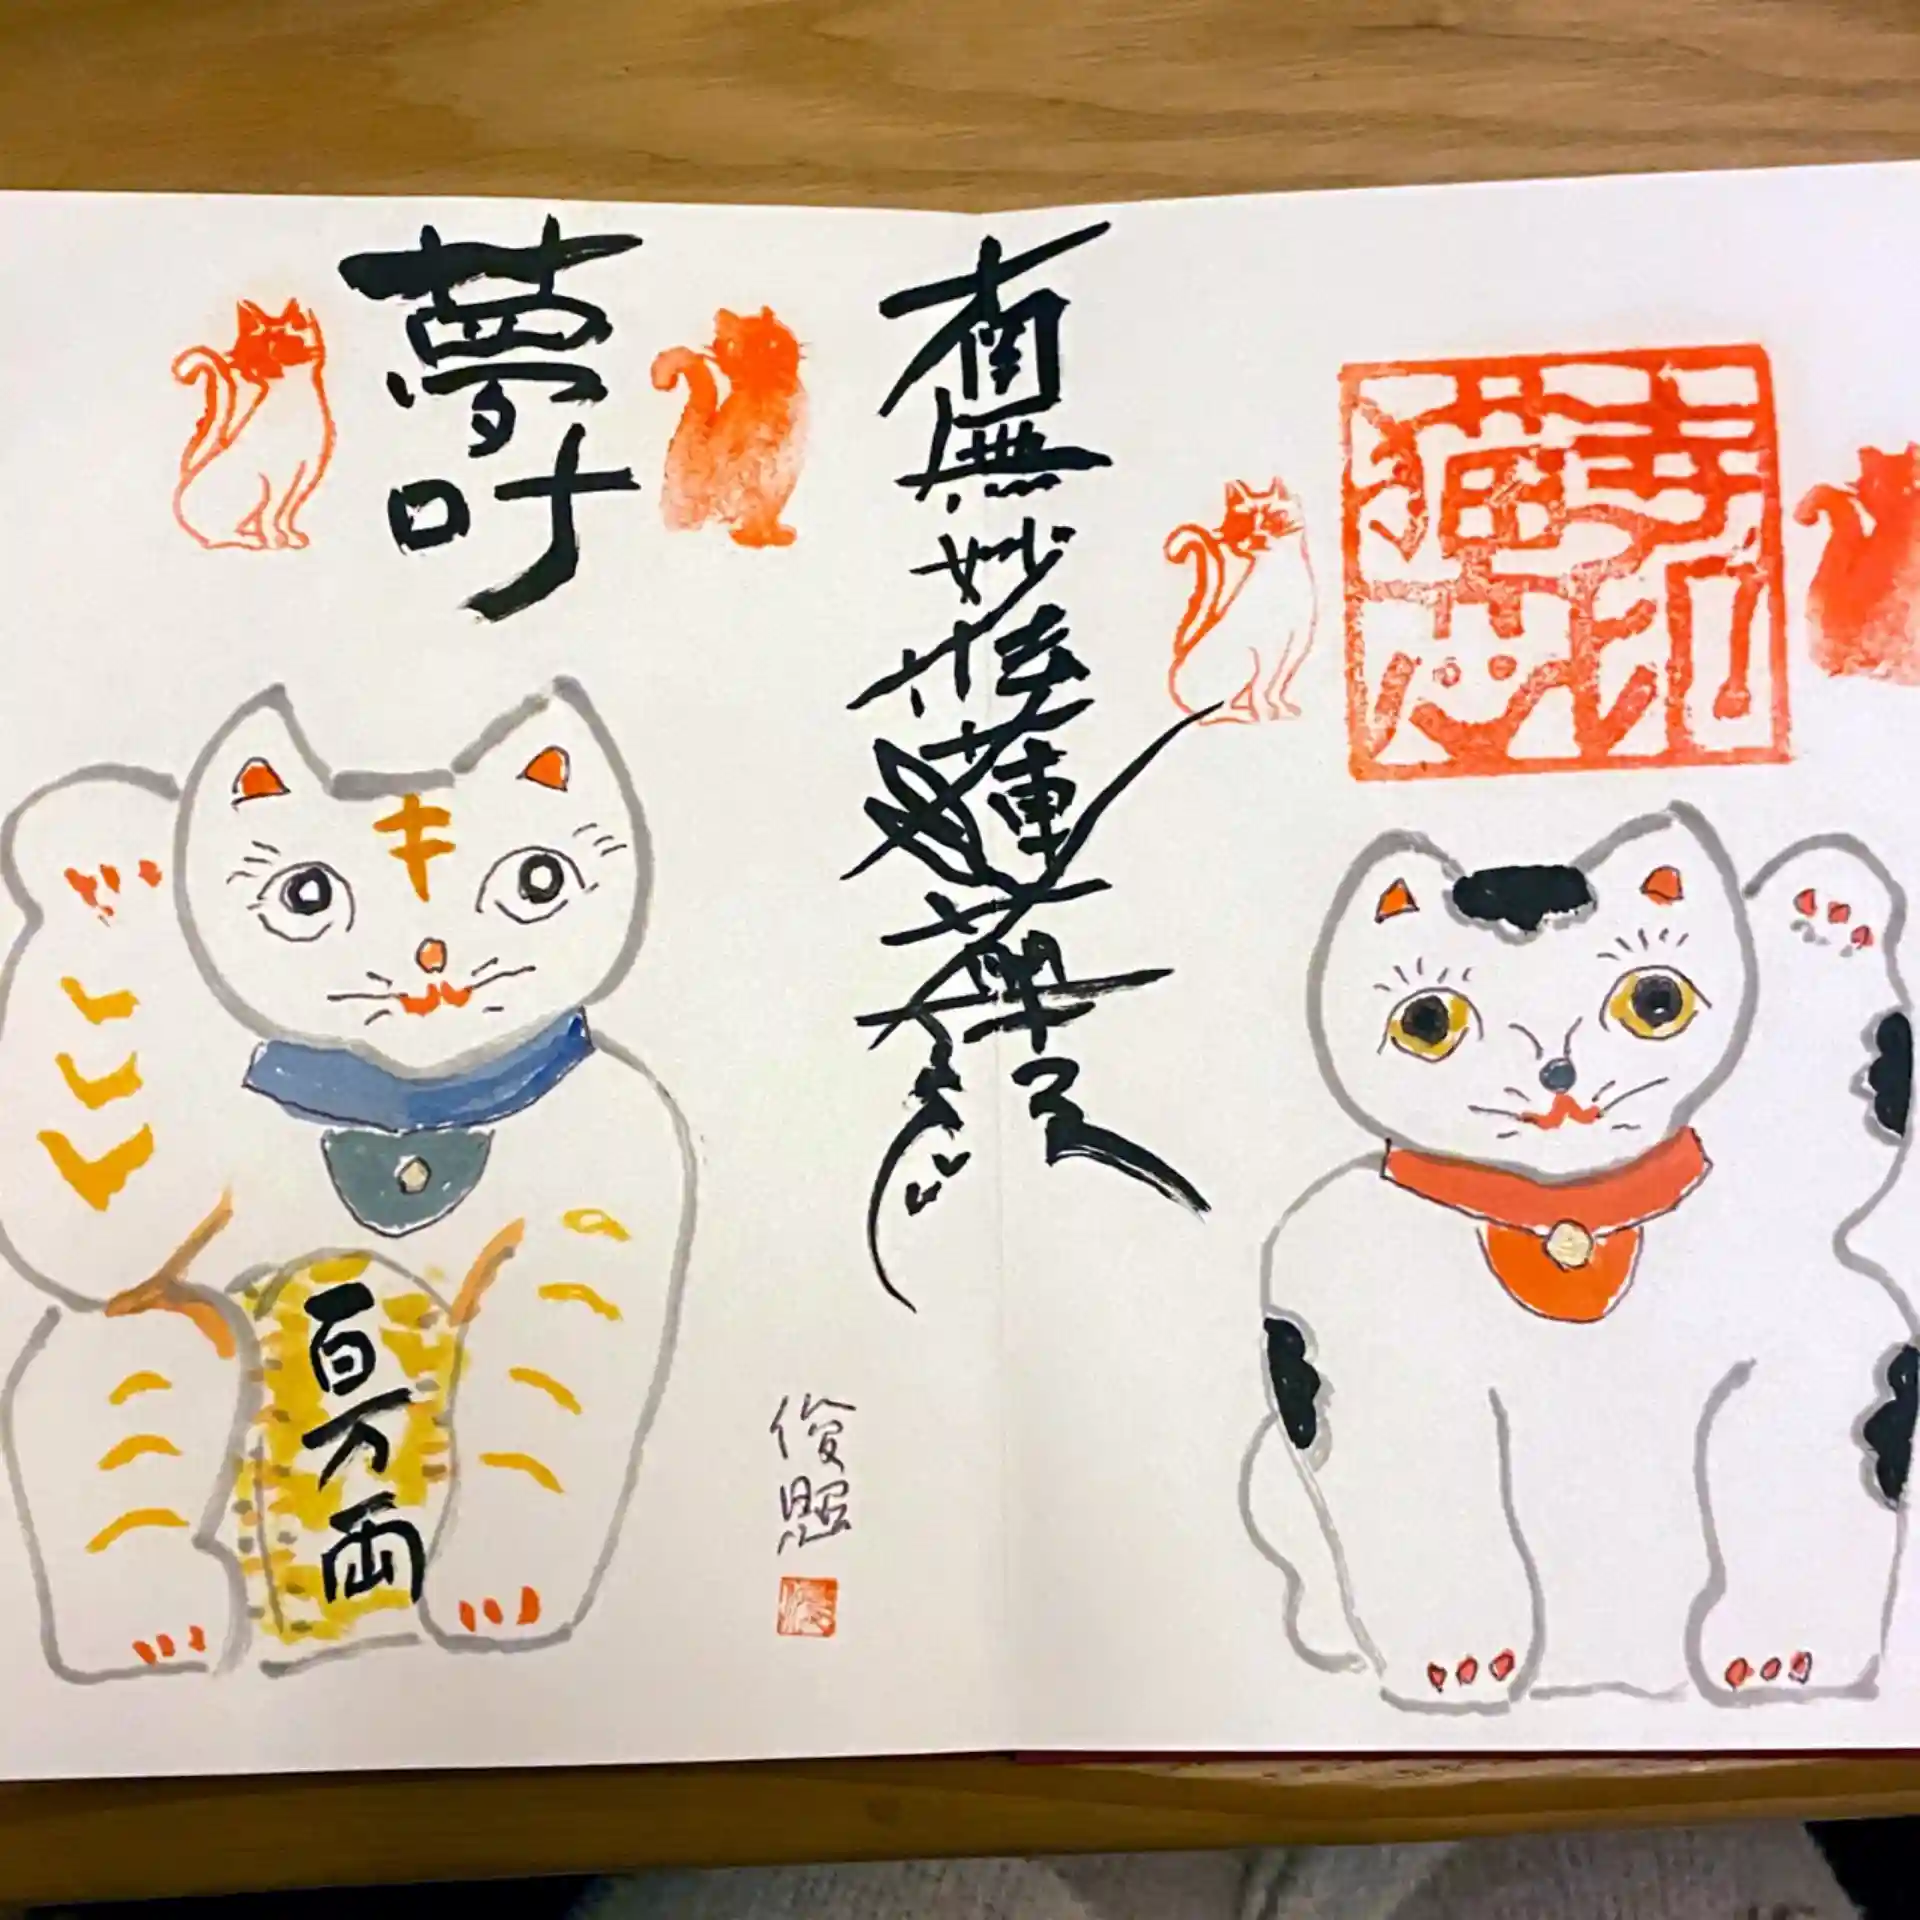 南無妙法蓮華経
夢叶
百万両
俊照